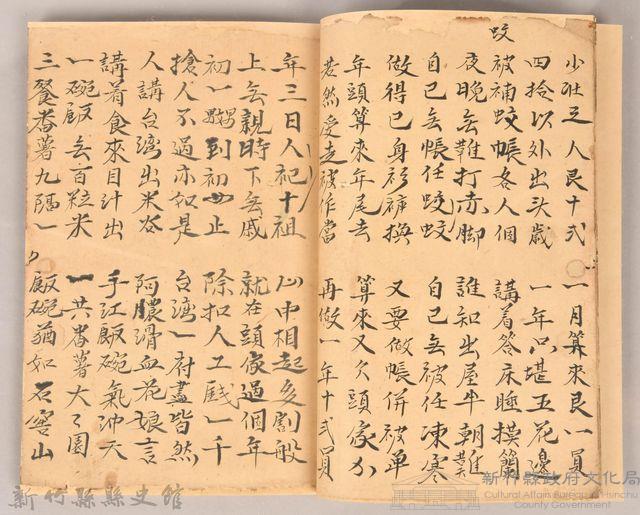 蚊
少壯之人艮十弍 一月算來艮一員
四拾以外出头歲 一年只堪五花邊
被補蚊帳各人個 講着答床睡摸
夜晚無難打赤脚 誰知出屋半朝難
自己無帳任蚊 自己無被任凍寒
做得己身衫褲換 又要做帳併被单
年頭算來年尾去 算來又欠頭家
若然受走被作當 再做一年十弍員
年三日人祀十祖 心中相起多刻般
上無親時下無戚 就在頭家過個年
初一嬲到初四止 除扣人工一千
搶人不過亦如是 台湾一府盡皆然
人講台湾出米谷 阿膿滑血花娘言
講着食來目汁出 手扛飯碗氣冲天
一碗飯無百粒米 一共番薯大大園
三餐番薯九隔一 飯碗猶如石窖山
新竹縣縣史館
新竹縣政府文化局
Cultural Affairs Bureau of Hsinchu
County Government